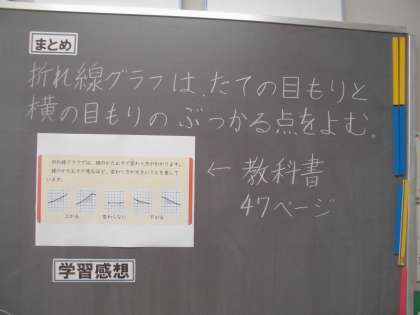 まとめ
折れ線グラフは、たての目もりと
横の目もりの ぶつかる点をよむ。
折れ線グラフでは、線のかたむきで変わり方がわかります。
線のかたむきが急なほど、変わり方が大きいことを表して
います。
上がる 変わらない 下がる
← 教科書
47ページ
学習感想